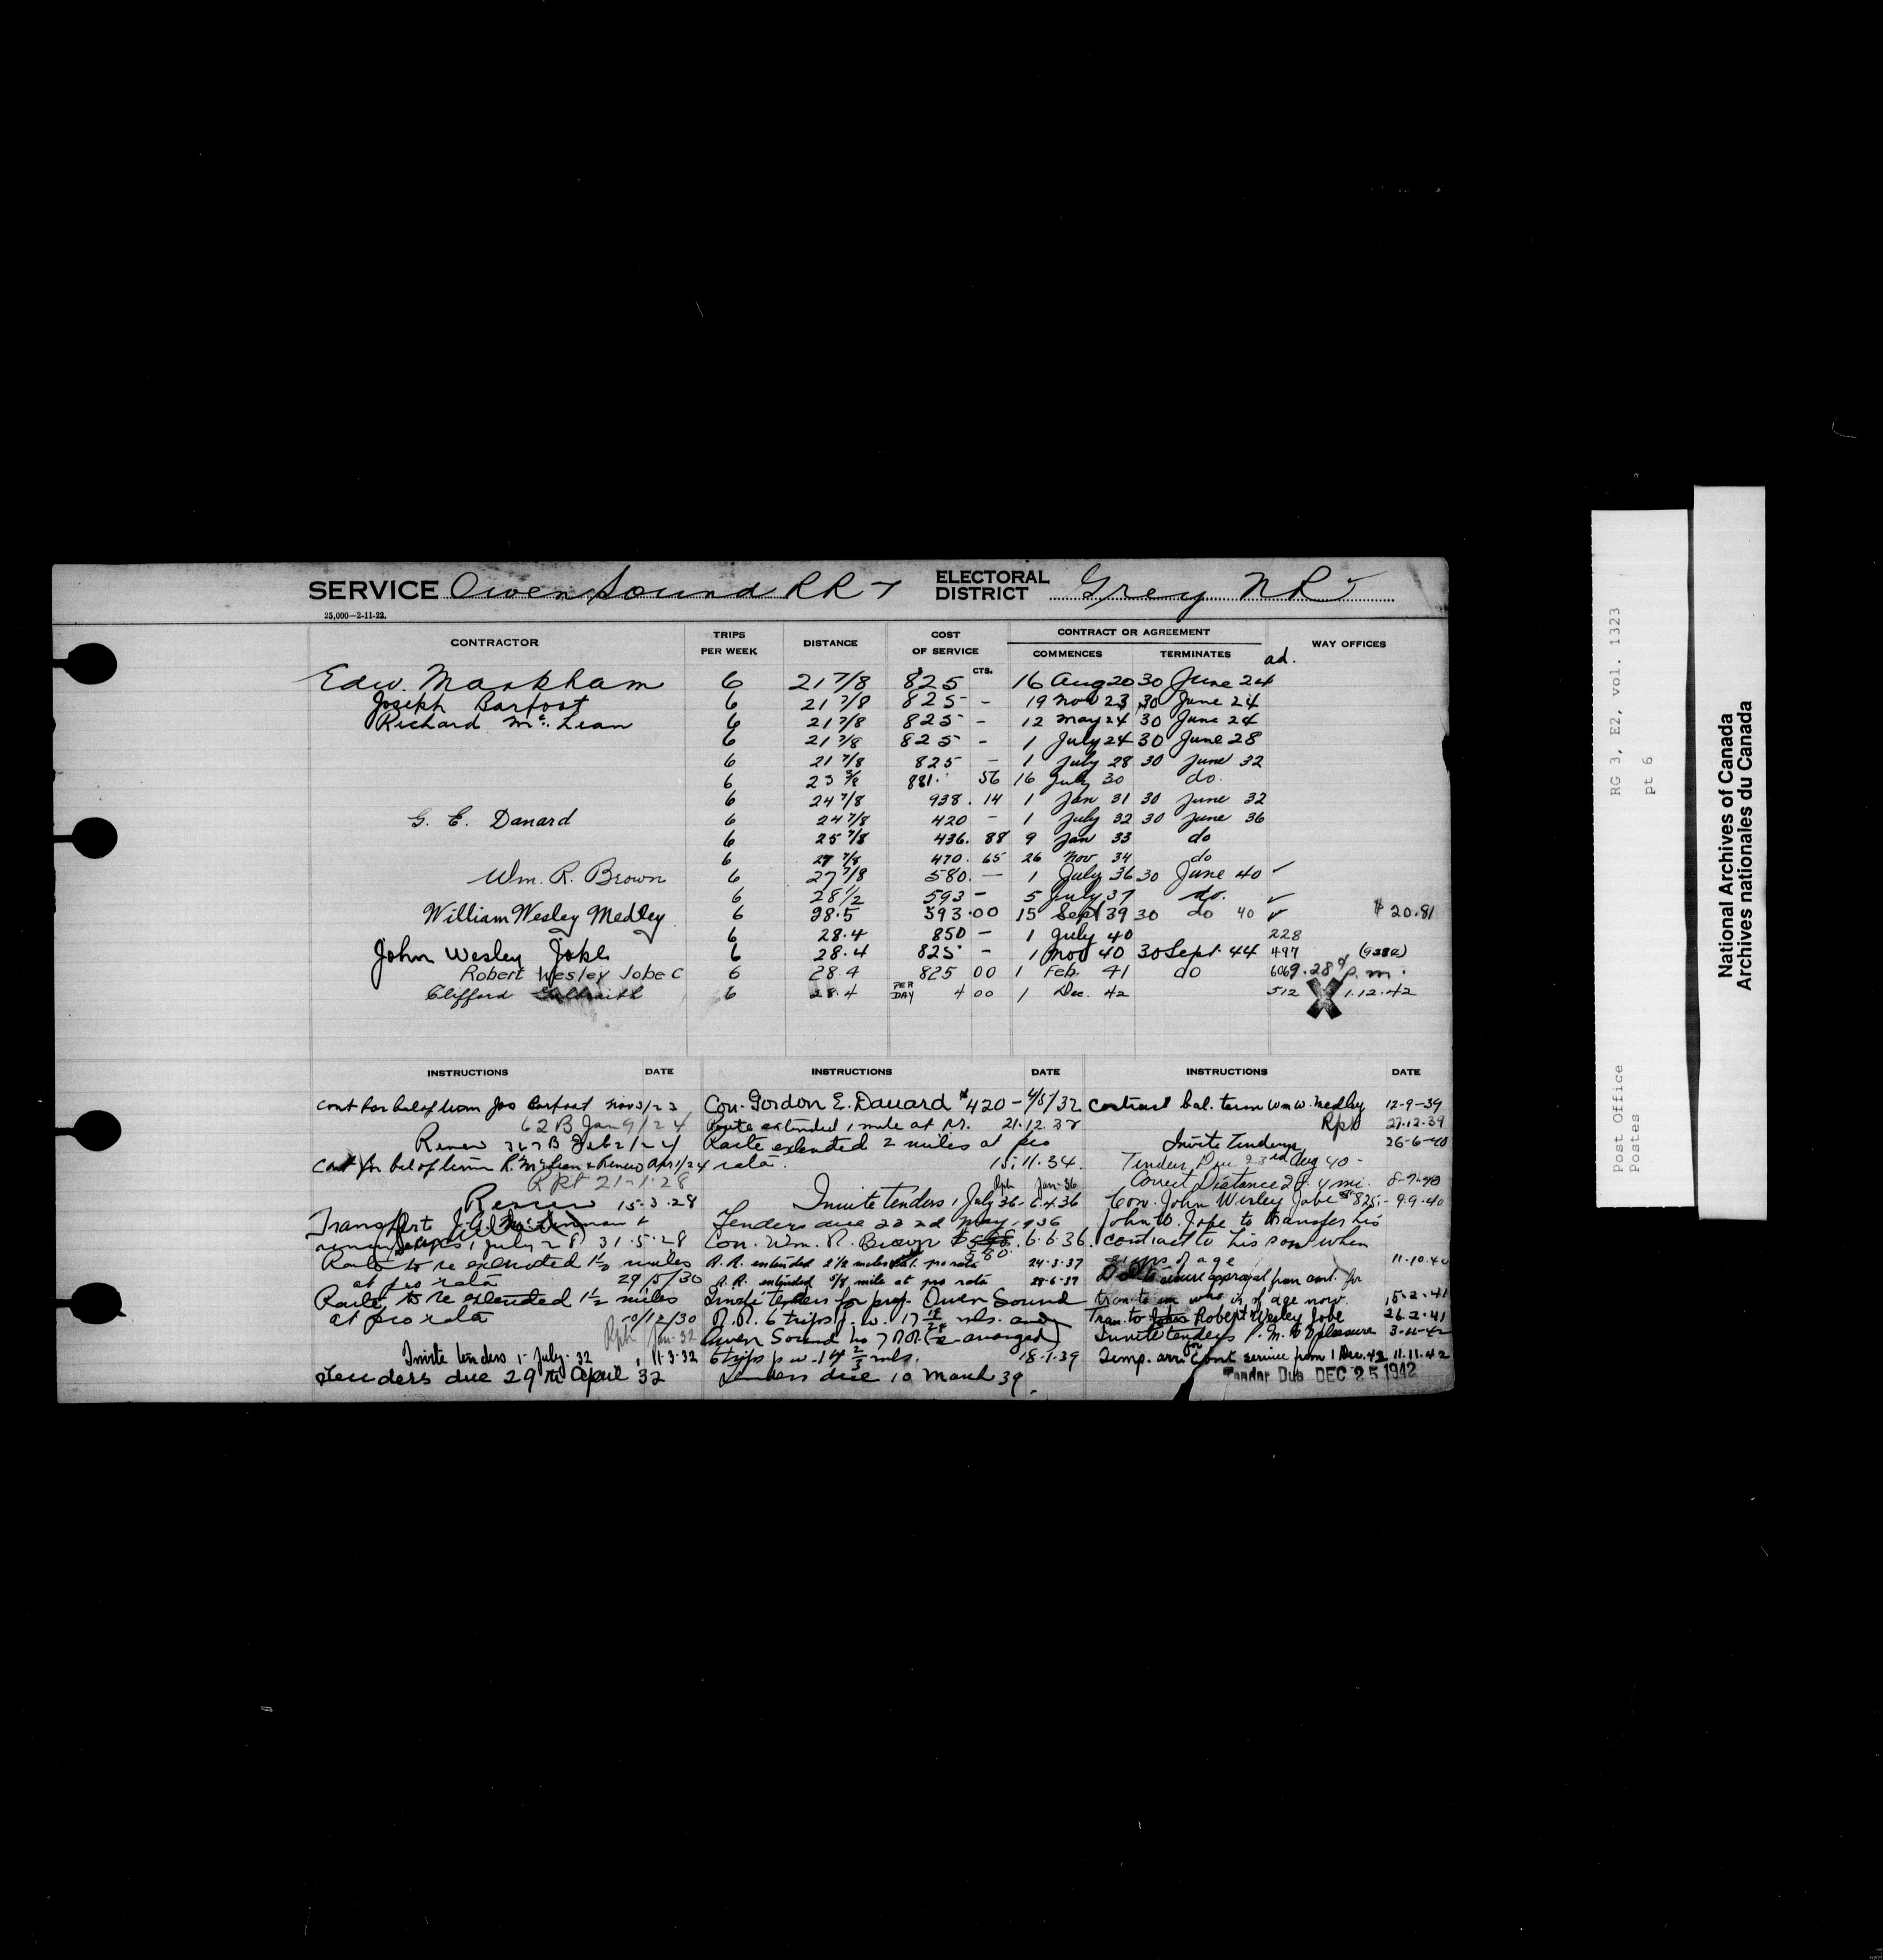 SERVICE Owen Sound RR 7 ELECTORAL DISTRICT Grey NR
25,000—2-11-22.
CONTRACTOR TRIPS PER WEEK DISTANCE COST OF SERVICE CONTRACT OR AGREEMENT COMMENCES TERMINATES WAY OFFICES
$ CTS. ad.
Edw. Markham 6 21 7/8 825 16 Aug 20 30 June 24
Joseph Barfoot 6 21 7/8 825 - 19 Nov 23 30 June 24
Richard Mc Lean 6 21 7/8 825 - 12 May 24 30 June 24
6 21 7/8 825 - 1 July 24 30 June 28
6 21 7/8 825 - 1 July 28 30 June 32
6 23 3/8 881. 56 16 July 30 do.
6 24 7/8 938. 14 1 Jan 31 30 June 32
G. E. Danard 6 24 7/8 420 - 1 July 32 30 June 36
6 25 7/8 436. 88 9 Jan 33 do
6 27 7/8 470. 65 26 Nov 34 do
Wm. R. Brown 6 27 7/8 580. — 1 July 36 30 June 40 ✓
6 28 1/2 593 - 5 July 37 do. ✓
William Wesley Medley 6 28.5 593.00 15 Sept 39 30 do 40 ✓ $20.81
6 28.4 850 - 1 July 40 228
John Wesley Jobe 6 28.4 825 - 1 Nov 40 30 Sept. 44 497
Robert Wesley Jobe C 6 28.4 825 00 1 Feb. 41 do p.m.
Clifford 6 28.4 PER DAY 4 00 1 Dec. 42 512 X 1.12.42
INSTRUCTIONS DATE INSTRUCTIONS DATE INSTRUCTIONS DATE
Cont for bal of term Jos Barfoot Nov 3/23
62 B Jan 9/24
Renew 367 B Feb 2/24
Cont for bal of term R. McLean & Renew Apr 1/24
Rpt 21-1-28
Renew 15.3.28
Transfert
1 July 28 31.5.28
Route to be extended 1 1/2 miles
at pro rata 29/5/30
Route to be extended 1 1/2 miles
at pro rata 10/12/30
Rph Jan-32
Invite tenders 1 July-32 11-3-32
Tenders due 29th April 32
Con. Gordon E. Danard $420 - 4/5/32
Route extended 1 mile at P.r. 21.12.32
Route extended 2 miles at pro
rata. 15.11.34.
Rph Jan-36
Invite tenders 1 July 36 - 6.4.36
Tenders due 22nd May 1936
Con. Wm. R. Brown 580. 6.6.36.
R.R. extended 2 1/2 miles at pro rata 24-3-37
R.R. extended 5/8 mile at pro rata 28-6-37
Invite tenders for prop. Owen Sound
R.R. 6 trips p. w. 17 mls. and
Owen Sound No 7 R.R. (re-arranged)
6 trips p w - 14 2/3 mls. 18-1-39
Tenders due 10 March 39.
Contract bal. term Wm W. Medley 12-9-39
Rph 27.12.39
Invite Tenders 26-6-40
Tenders Due 23rd Aug 40 -
Correct Distance 28.4 mi. 8-7-40
Con. John Wesley Jobe $825.- 9.9.40
John W. Jope to transfer his
contract to his son when
of age 11-10-40
to secure approval from cont. for
tran. to son who is of age now. 15-2-41
Tran. to Robert Wesley Jobe 26.2.41
Invite tenders P.M. to pleasure 3-11-42
Temp. arr. for cont service from 1 Dec. 42 11.11.42
Tender Due DEC 25 1942
RG 3, E2, vol. 1323
pt 6
Post Office
Postes
National Archives of Canada
Archives nationales du Canada